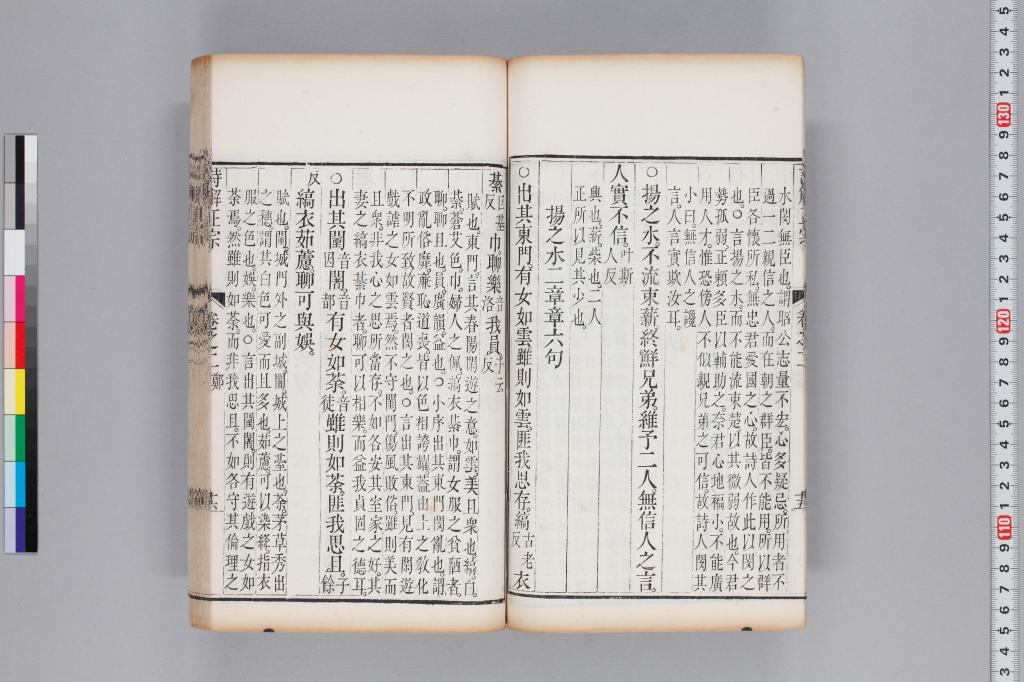 水閔無臣也謂昭公志量不宏心多疑忌所用者不
過一二親信之人而在朝之群臣皆不能用所以群
臣各懷所私無忠君愛國之心故詩人作此以閔之
也○言揚之水而不能流束楚以其微弱故也今君
勢孤弱正頼多臣以輔助之奈君心地褊小不能廣
用人才惟恐傍人不似親兄弟之可信故詩人閔其
小曰無信人之讒
言人言實歎汝耳
○揚之水不流束薪終鮮兄弟維予二人無信人之言
人實不信叶斯人反
興也薪柴也二人
正所以見其少也
揚之水二章章六句
○出其東門有女如雲雖則如雲匪我思存縞古老反衣
綦巨基反巾聊樂音洛我員于云反
賦也東門言其春陽閒遊之意如雲美且衆也縞白
綦蒼艾色巾婦人之佩縞衣綦巾謂女服之貧陋者
聊聊且也員廣韻益也○小序出其東門閔亂也謂
政亂俗靡亷恥道喪皆以色相誇耀蓋由上之敎化
不明所致故賢者閔之也○言出其東門見有閒遊
戲謔之女如雲焉然不守閨門傷風敗俗雖則美而
且衆非我心之思所當存不如各安其室家之好其
妻之縞衣綦巾者聊可以相樂而益我貞固之德耳
○出其闉音因闍音都有女如荼音徒雖則如荼匪我思且子餘
反縞衣茹藘聊可與娛
賦也闉城門外之副城闍城上之臺也荼茅草秀出
之穗謂其白色可愛而且多也茹藘可以染絳指衣
服之色也娛樂也○言出其闉闍則有遊戲之女如
荼焉然雖則如荼而非我思且不如各守其倫理之
詩解正宗
卷之二鄭